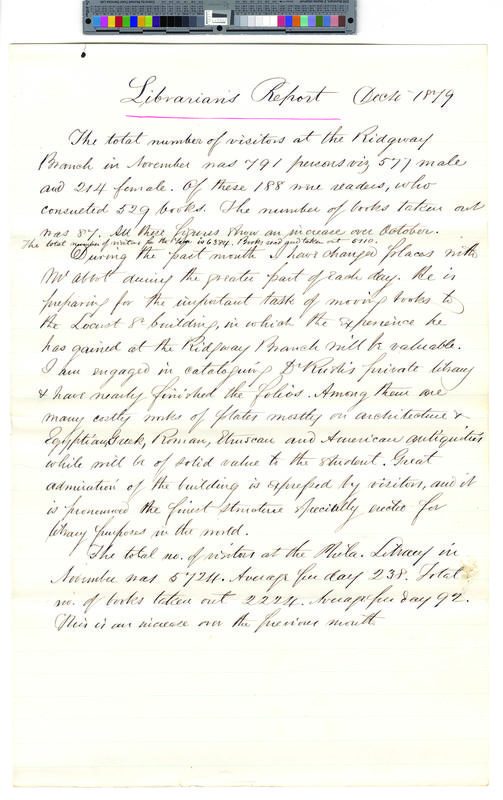 Librarian's Report Dec 4 1879
The total number of visitors at the Ridgway
Branch in November was 791 persons viz 577 male
and 214 female. Of these 188 were readers, who
consulted 529 books. The number of books taken out
was 87. All these figures show an increase over October.
The total number of visitors for the year is 6384. Books used and taken out
During the past month I have changed places with
Mr Abbot during the greater part of each day. He is
preparing for the important task of moving books to
the Locust St building, in which the experience he
has gained at the Ridgway Branch will be valuable.
I am engaged in cataloguing Dr Rush's private library
& have nearly finished the folios. Among them are
many costly works of plates mostly on architecture &
Egyptian, Greek, Roman, Etruscan and American antiquities
while will be of solid value to the student. Great
admiration of the building is expressed by visitors, and it
is pronounced the finest structure specially erected for
library purposes in the world.
The total no. of visitors at the Phila. Library in
November was 5724. Average per day 238. Total
no. of books taken out 2224. Average per day 92.
This is an increase over the previous month.